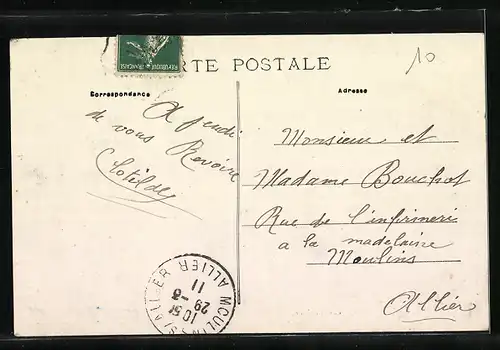 10
RÉPUBLIQUE FRANÇAISE
RTE POSTALE
Correspondance
A jeudi
de vous Revoire
Clotilde
Adresse
Monsieur et
Madame Bouchot
Rue de l'infirmeri
a la madelaine
Moulins
Allier
MOULINS S/ ALLIER
10 5
29-3
11
ALLIER